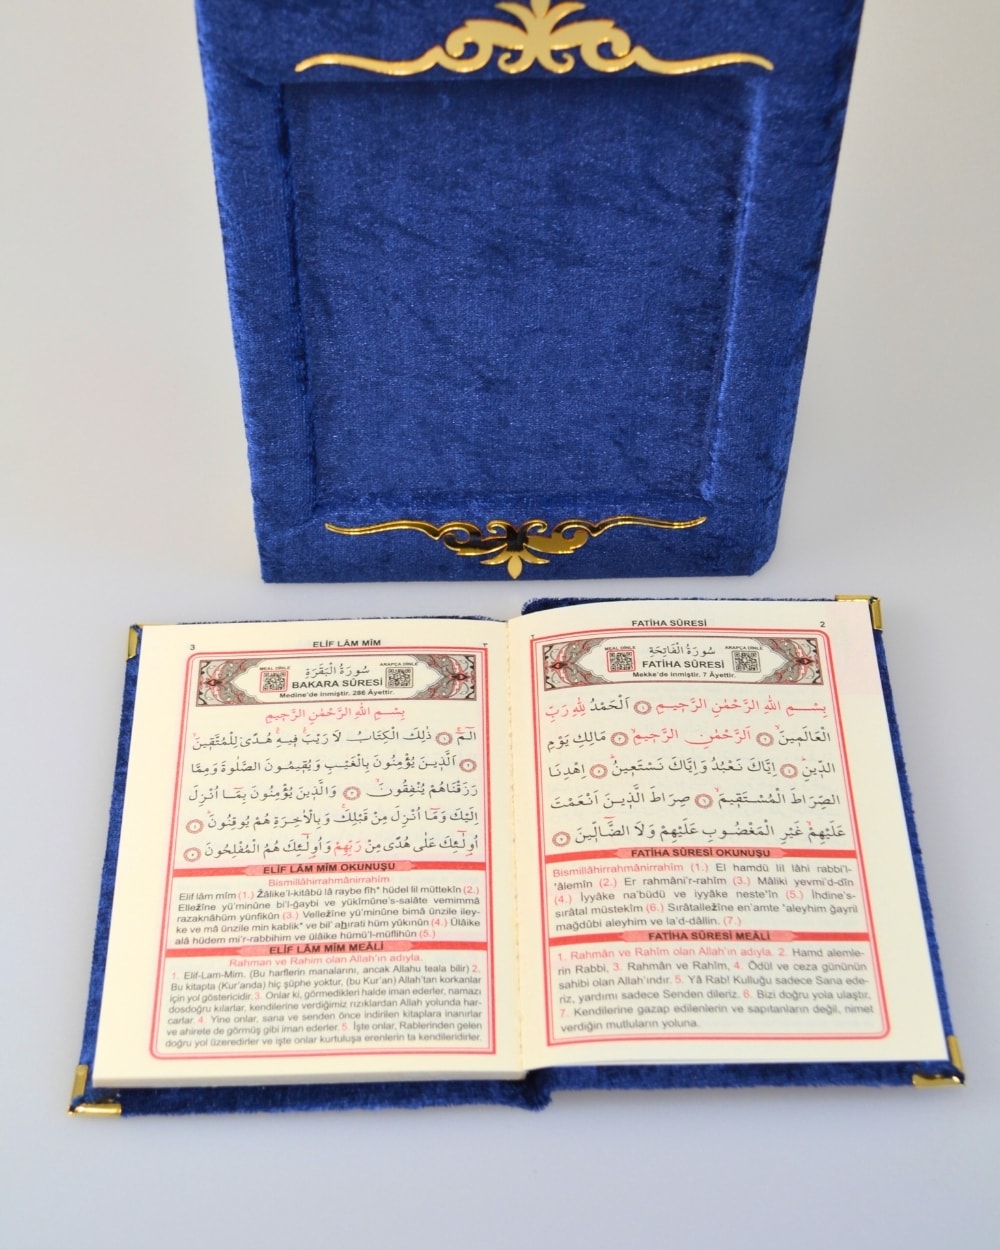 FATİHA SÛRESİ 2
٢
MEAL DİNLE
ARAPÇA DİNLE
سُورَةُ الْفَاتِحَةِ
FATİHA SÛRESİ
Mekke'de inmiştir. 7 Âyettir.
بِسْمِ اللهِ الرَّحْمٰنِ الرَّحِيمِ ﴿١﴾ اَلْحَمْدُ لِلّٰهِ رَبِّ
الْعَالَمِينَۙ ﴿٢﴾ اَلرَّحْمٰنِ الرَّحِيمِۙ ﴿٣﴾ مَالِكِ يَوْمِ
الدِّينِۜ ﴿٤﴾ اِيَّاكَ نَعْبُدُ وَاِيَّاكَ نَسْتَعِينُۜ ﴿٥﴾ اِهْدِنَا
الصِّرَاطَ الْمُسْتَقِيمَۙ ﴿٦﴾ صِرَاطَ الَّذِينَ اَنْعَمْتَ
عَلَيْهِمْۙ غَيْرِ الْمَغْضُوبِ عَلَيْهِمْ وَلَا الضَّٓالِّينَ ﴿٧﴾
FATİHA SÛRESİ OKUNUŞU
Bismillâhirrahmânirrahîm (1.) El hamdü lil lâhi rabbi'l-
'âlemîn (2.) Er rahmâni'r-rahîm (3.) Mâliki yevmi'd-dîn
(4.) İyyâke na'büdü ve iyyâke neste'în (5.) İhdine's-
sırâtal müstekîm (6.) Sırâtalležîne en'amte 'aleyhim ğayril
mağdûbi aleyhim ve la'd-dâllin. (7.)
FATİHA SÛRESİ MEÂLİ
1. Rahmân ve Rahîm olan Allah'ın adıyla. 2. Hamd alemle-
rin Rabbi, 3. Rahmân ve Rahîm, 4. Ödül ve ceza gününün
sahibi olan Allah'ındır. 5. Yâ Rab! Kulluğu sadece Sana ede-
riz, yardımı sadece Senden dileriz. 6. Bizi doğru yola ulaştır,
7. Kendilerine gazap edilenlerin ve sapıtanların değil, nimet
verdiğin mutluların yoluna.
3 ELİF LÂM MÎM ٣
MEAL DİNLE
ARAPÇA DİNLE
سُورَةُ الْبَقَرَةِ
BAKARA SÛRESİ
Medine'de inmiştir. 286 Âyettir.
بِسْمِ اللهِ الرَّحْمٰنِ الرَّحِيمِ
الٓمٓۚ ﴿١﴾ ذٰلِكَ الْكِتَابُ لَا رَيْبَۚ فِيهِۚ هُدًى لِلْمُتَّقِينَۙ
﴿٢﴾ اَلَّذِينَ يُؤْمِنُونَ بِالْغَيْبِ وَيُقِيمُونَ الصَّلٰوةَ وَمِمَّا
رَزَقْنَاهُمْ يُنْفِقُونَۙ ﴿٣﴾ وَالَّذِينَ يُؤْمِنُونَ بِمَٓا اُنْزِلَ
اِلَيْكَ وَمَٓا اُنْزِلَ مِنْ قَبْلِكَۚ وَبِالْاٰخِرَةِ هُمْ يُوقِنُونَۜ ﴿٤﴾
اُولٰٓئِكَ عَلٰى هُدًى مِنْ رَبِّهِمْ وَاُولٰٓئِكَ هُمُ الْمُفْلِحُونَ ﴿٥﴾
ELİF LÂM MÎM OKUNUŞU
Bismillâhirrahmânirrahîm
Elif lâm mîm (1.) Žâlike'l-kitâbü lâ raybe fîh* hüdel lil müttekîn (2.)
Elležîne yü'minûne bi'l-ğaybi ve yükîmûne's-salâte vemimmâ
razaknâhüm yünfikûn (3.) Velležîne yü'minûne bimâ ünzile iley-
ke ve mâ ünzile min kablik* ve bil' aḫırati hüm yûkınûn (4.) Ülâike
alâ hüdem mi'r-rabbihim ve ülâike hümü'l-müflihûn (5.)
ELİF LÂM MÎM MEÂLİ
Rahman ve Rahim olan Allah'ın adıyla.
1. Elif-Lam-Mim. (Bu harflerin manalarını, ancak Allahu teala bilir) 2.
Bu kitapta (Kur'anda) hiç şüphe yoktur, (bu Kur'an) Allah'tan korkanlar
için yol göstericidir. 3. Onlar ki, görmedikleri halde iman ederler, namazı
dosdoğru kılarlar, kendilerine verdiğimiz rızıklardan Allah yolunda har-
carlar. 4. Yine onlar, sana ve senden önce indirilen kitaplara inanırlar
ve ahirete de görmüş gibi iman ederler. 5. İşte onlar, Rablerinden gelen
doğru yol üzeredirler ve işte onlar kurtuluşa erenlerin ta kendileridirler.